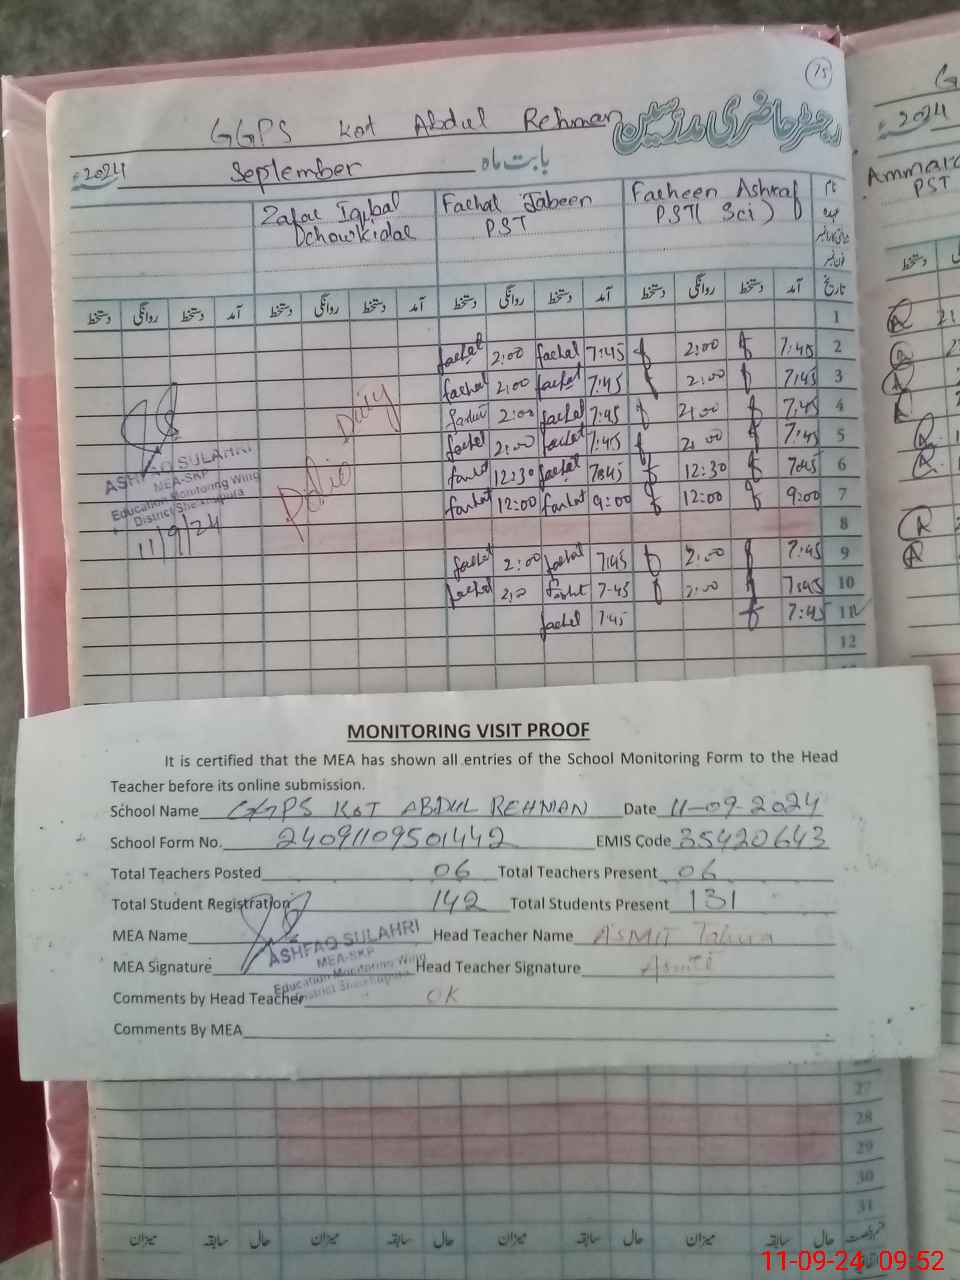 15
GGPS Kot Abdul Rehman رجسٹر حاضری مدرسین
2024ء September بابت ماہ
Zafar Iqbal Farhat Jabeen Farheen Ashraf نام
Chowkidar PST PST( Sci ) عہدہ
دستخط روانگی دستخط آمد دستخط روانگی دستخط آمد دستخط روانگی دستخط آمد دستخط روانگی دستخط آمد تاریخ
1
farhat 2:00 farhat 7:45 2:00 7:45 2
farhat 2:00 farhat 7:45 2:00 7:45 3
2:00 farhat 7:45 2:00 7:45 4
farhat 2:00 farhat 7:45 2:00 7:45 5
farhat 12:30 farhat 7:45 12:30 7:45 6
farhat 12:00 farhat 9:00 12:00 9:00 7
8
farhat 2:00 farhat 7:45 2:00 7:45 9
farhat 2:00 farhat 7:45 2:00 7:45 10
farhat 7:45 7:45 11
12
Polio Duty
ASHFAQ SULAHRI
MEA-SKP
Education Monitoring Wing
District Sheikhupura
11/9/24
G
2024ء
Ammara
PST
دستخط
MONITORING VISIT PROOF
It is certified that the MEA has shown all entries of the School Monitoring Form to the Head
Teacher before its online submission.
School Name GGPS KOT ABDUL REHMAN Date 11-09-2024
School Form No. 24091109501442 EMIS Code 35420643
Total Teachers Posted 06 Total Teachers Present 06
Total Student Registration 142 Total Students Present 131
MEA Name Head Teacher Name
MEA Signature Head Teacher Signature
ASHFAQ SULAHRI
MEA-SKP
Education Monitoring Wing
District Sheikhupura
Comments by Head Teacher OK
Comments By MEA
27
28
29
30
31
میزان سابقہ حال میزان سابقہ حال میزان سابقہ حال میزان سابقہ حال
11-09-24 09:52